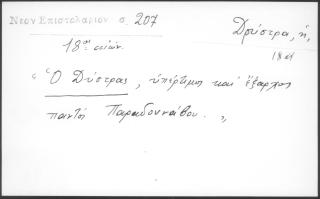 Νεον Επιστολαριον σ. 207
Δρύστρα, ἡ,
18ος αἰών.
"Ὁ Δύστρας, ὑπέρτιμος καὶ ἔξαρχος
παντὸς Παραδουνάβου."